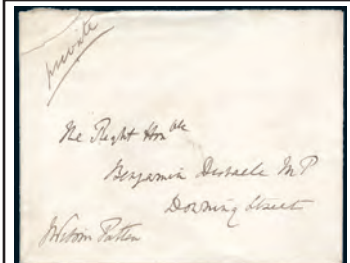 private
The Right Hon ble
Benjamin Disraeli MP
Downing Street
J Wilson Patten